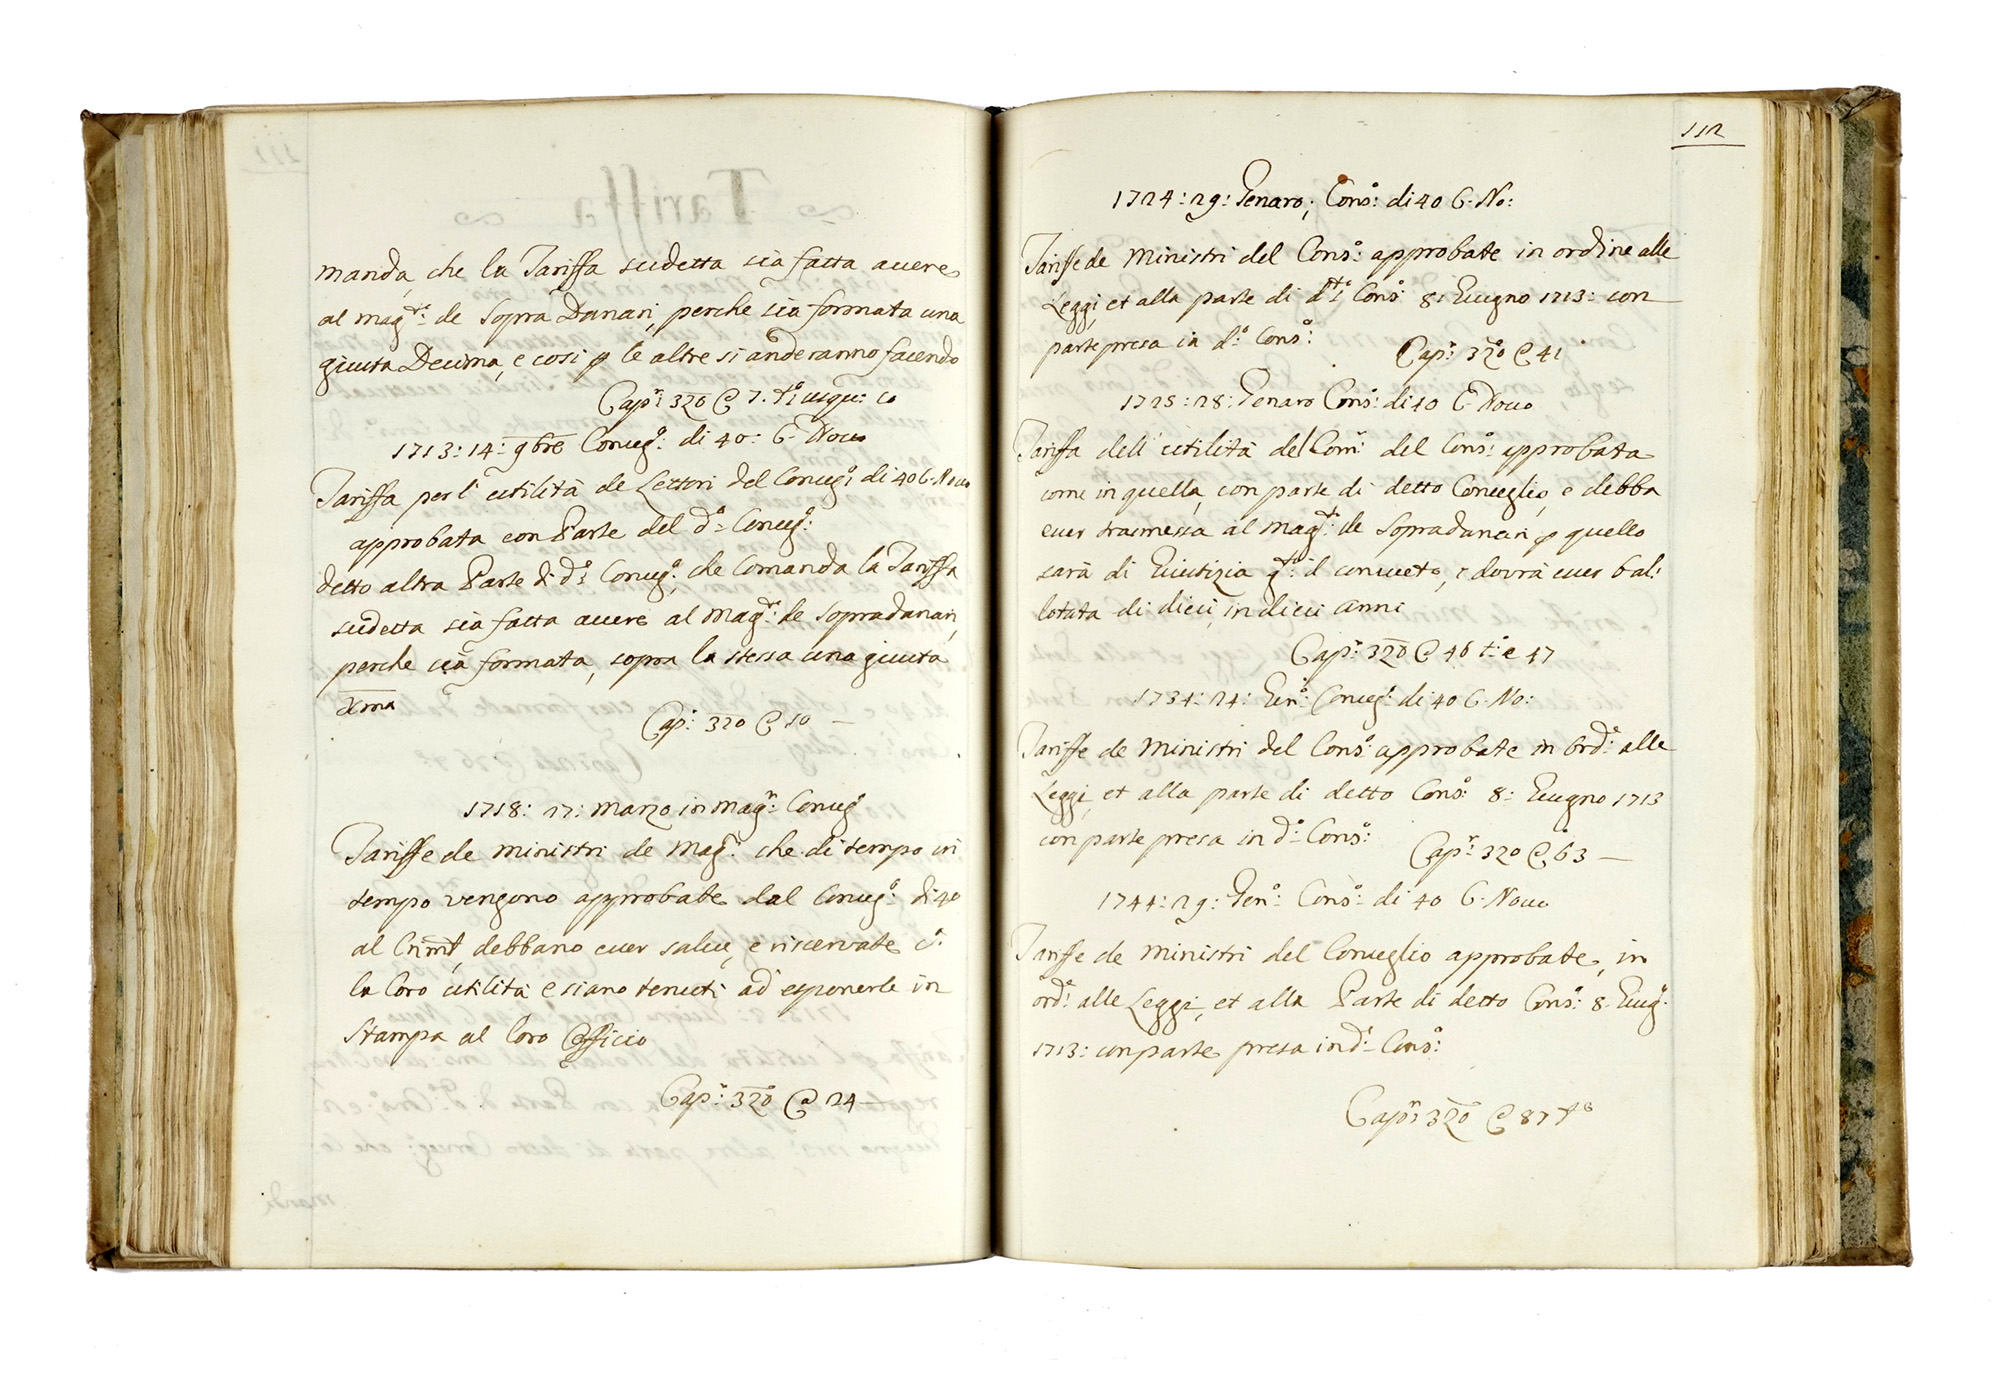 manda, che la Tariffa sudetta sia fatta avere
al mag:r de Sopra Danari, perche sia formata una
giusta Decima, e cosi p le altre si anderanno facendo
Cap:r 320 @ 7. t:o usqu:
1713: 14: 9bre Consig:o di 40: C. Novo
Tariffa per l'utilità de Lettori del Consig:o di 40 C. Novo
approbata con Parte del d:o Consig:o
detto altra Parte di d:o Consig:o che Comanda la Tariffa
sudetta sia fatta avere al Mag:r de Sopradanari,
perche sia formata, sopra la stessa una giusta
Xma
Cap:r 320 @ 10 —
1718: 27: Marzo in Mag:r Consig:o
Tariffe de Ministri de Mag:ti che di tempo in
tempo vengono approbate dal Consig:o di 40
al debbano esser salve, e riservate
la loro utilità e siano tenuti ad esponerle in
Stampa al loro Officio
Cap:r 320 @ 24 —
112
1724: 29: Genaro; Cons:o di 40 C. No:
Tariffe de Ministri del Cons:o approbate in ordine alle
Leggi, et alla parte di d:to Cons:o 8: Giugno 1713: con
parte presa in d:o Cons:o
Cap:r 320 @ 41
1725: 28: Genaro Cons:o di 40 C. Novo
Tariffa dell'utilità del Com: del Cons:o approbata
come in quella, con parte di detto Conseglio, e debba
esser trasmessa al Mag:to de Sopradanari p quello
sarà di Giustizia g:to il consueto, e dovrà esser bal:
lotata di dieci, in dieci anni
Cap:r 320 @ 46 t:o e 47
1734: 24: Gen:o Consig:o di 40 C. No:
Tariffe de Ministri del Cons:o approbate in Ord:e alle
Leggi, et alla parte di detto Cons:o 8: Giugno 1713
con parte presa in d:o Cons:o
Cap:r 320 @ 63 —
1744: 29: Gen:o Cons:o di 40 C. Novo
Tariffe de Ministri del Conseglio approbate, in
ord:e alle Leggi, et alla Parte di detto Cons:o 8. Giug:o
1713: con parte presa in d:o Cons:o
Cap:r 320 @ 87 t:o